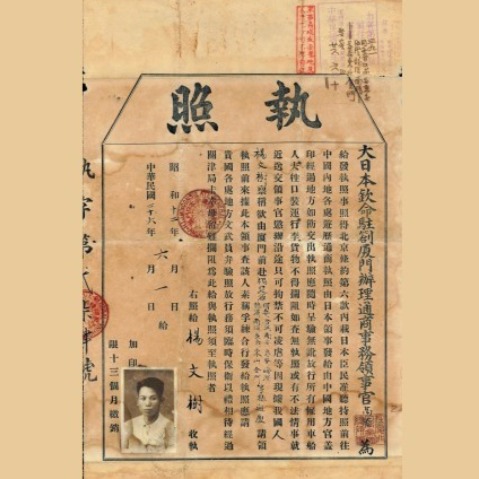 執照
大日本欽命駐劄廈門辦理通商事務領事官 為
給發執照事照得北京條約第六款內載日本臣民准聽持照前往
中國內地各處遊歷通商執照由日本領事發給由中國地方官蓋
印經過地方如飭交出執照應隨時呈驗無訛放行所有僱用車船
人夫牲口裝運行李貨物不得攔阻如查無執照或有不法情事就
近送交領事官懲辦沿途只可拘禁不可凌虐等因現據我國人
楊文樹稟稱欲由廈門前赴 請領
執照前來據此本領事查該人素稱孚練合行發給執照應請
貴國各處地方文武員弁驗照放行務須臨時保衛以禮相待經過
關津局卡幸毋留難攔阻為此給與執照須至執照者
右照給 楊文樹 收執
昭和十二年 六月一日給
中華民國二十六年 月 日加印
限十三個月繳銷
執字第 號